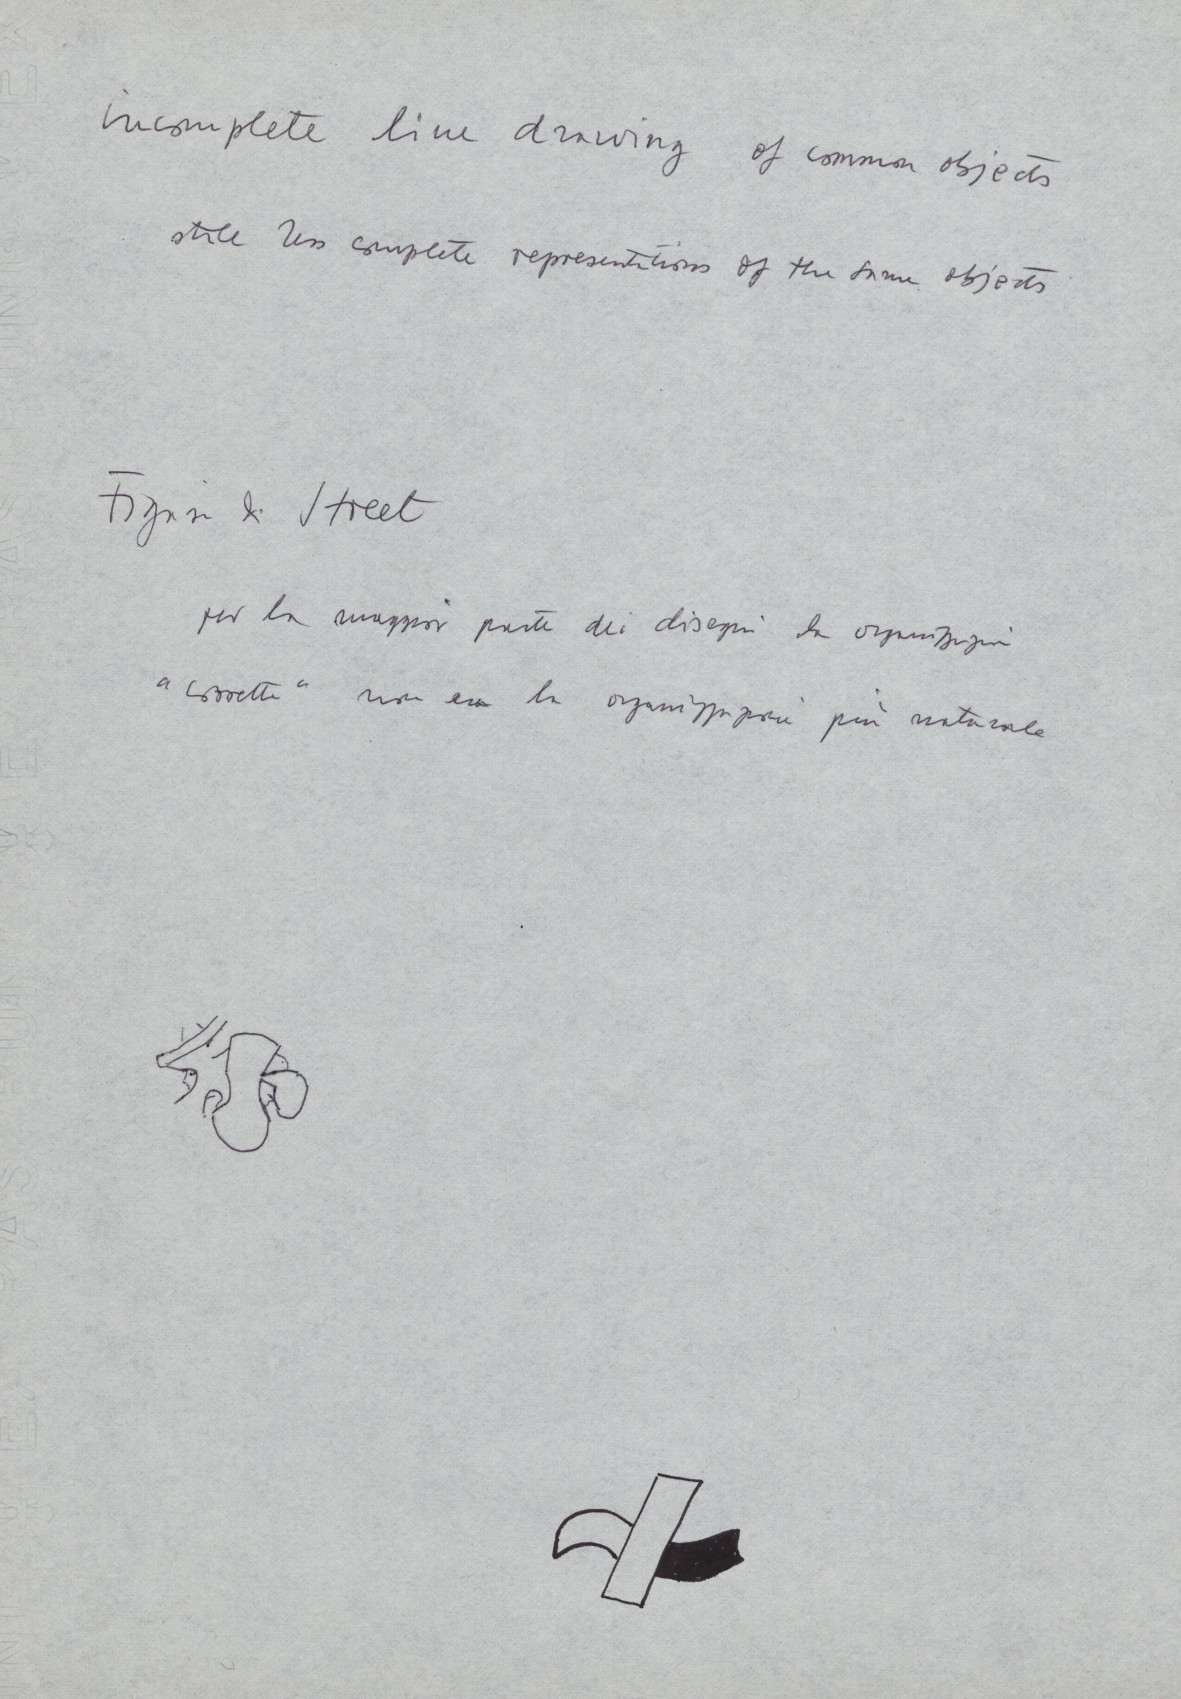 incomplete line drawing of common objects
still less complete representations of the same objects
Figure di Street
per la maggior parte dei disegni la organizzazione
"corretta" non era la organizzazione più naturale